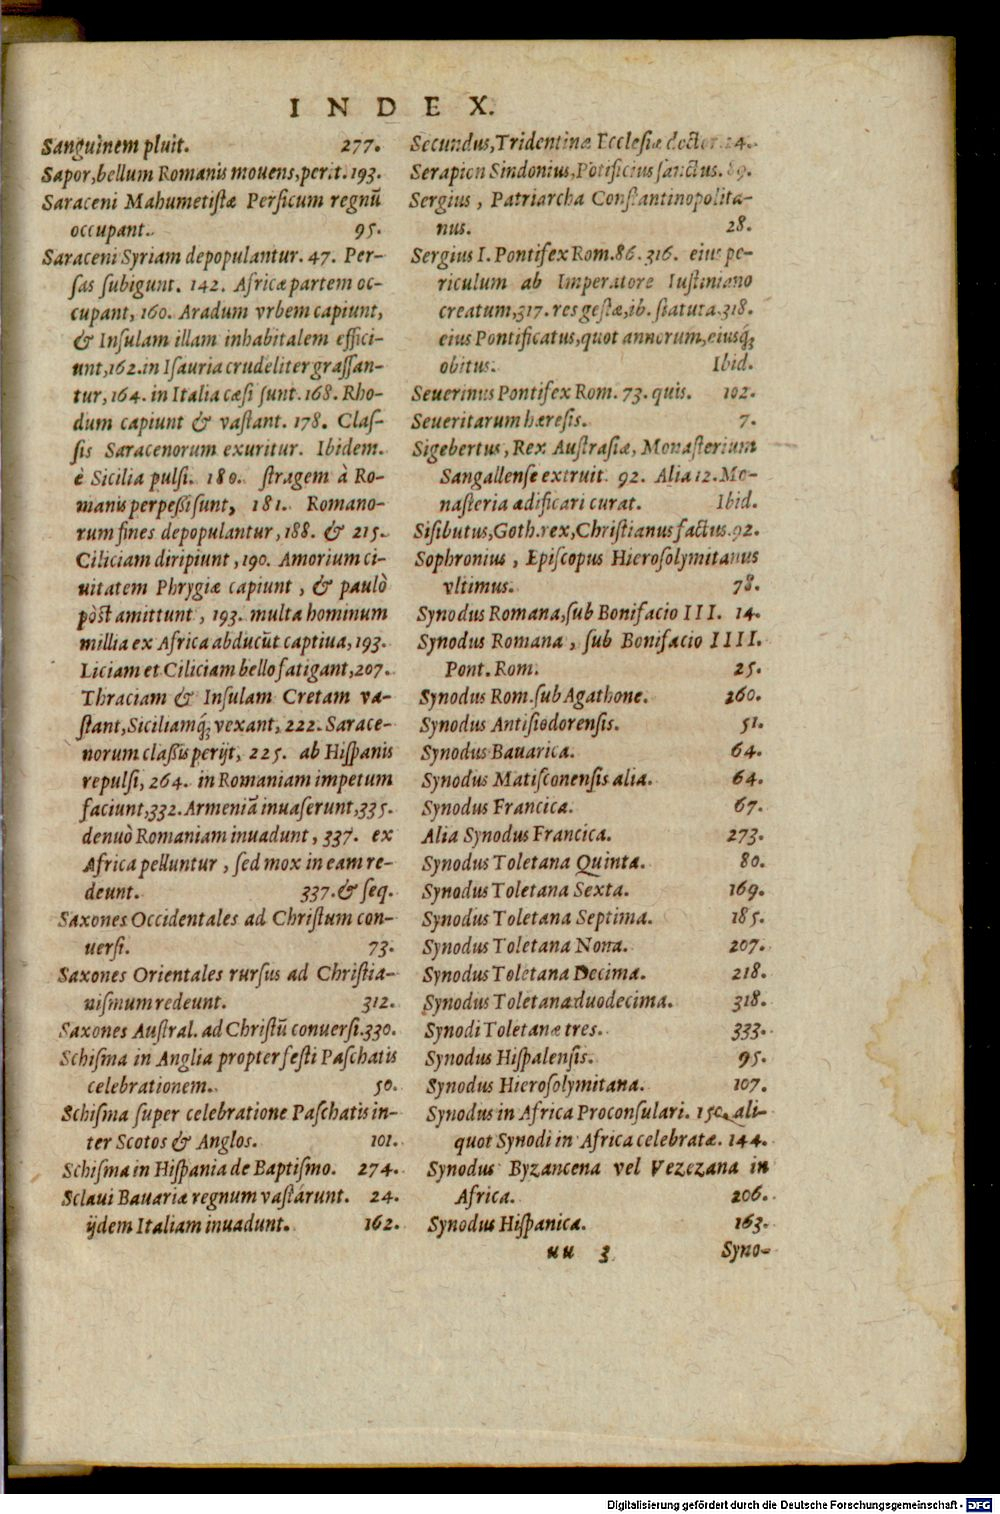 INDEX.
Sanguinem pluit. 277.
Sapor, bellum Romanis mouens, perit. 193.
Saraceni Mahumetistæ Persicum regnũ
occupant. 95.
Saraceni Syriam depopulantur. 47. Per-
sas subigunt. 142. Africæ partem oc-
cupant, 160. Aradum vrbem capiunt,
& Insulam illam inhabitalem effici-
unt, 162. in Isauria crudeliter grassan-
tur, 164. in Italia cæsi sunt. 168. Rho-
dum capiunt & vastant. 178. Clas-
sis Saracenorum exuritur. Ibidem.
è Sicilia pulsi. 180. stragem à Ro-
manis perpeßi sunt, 181. Romano-
rum fines depopulantur, 188. & 215.
Ciliciam diripiunt, 190. Amorium ci-
uitatem Phrygiæ capiunt, & paulò
pòst amittunt, 193. multa hominum
millia ex Africa abducũt captiua, 193.
Liciam et Ciliciam bello fatigant, 207.
Thraciam & Insulam Cretam va-
stant, Siciliamq́; vexant, 222. Sarace-
norum claßis perijt, 225. ab Hispanis
repulsi, 264. in Romaniam impetum
faciunt, 332. Armeniã inuaserunt, 335.
denuò Romaniam inuadunt, 337. ex
Africa pelluntur, sed mox in eam re-
deunt. 337. & seq.
Saxones Occidentales ad Christum con-
uersi. 73.
Saxones Orientales rursus ad Christia-
nismum redeunt. 312.
Saxones Austral. ad Christũ conuersi. 330.
Schisma in Anglia propter festi Paschatis
celebrationem. 50.
Schisma super celebratione Paschatis in-
ter Scotos & Anglos. 101.
Schisma in Hispania de Baptismo. 274.
Sclaui Bauariæ regnum vastârunt. 24.
ijdem Italiam inuadunt. 162.
Secundus, Tridentinæ Ecclesiæ doctor.
Serapion Sindonius, Põtificius sanctus. 89.
Sergius, Patriarcha Constantinopolita-
nus. 28.
Sergius I. Pontifex Rom. 86. 316. eius pe-
riculum ab Imperatore Iustiniano
creatum, 317. res gestæ, ib. statuta. 318.
eius Pontificatus, quot annorum, eiusq́;
obitus. Ibid.
Seuerinus Pontifex Rom. 73. quis. 102.
Seueritarum hæresis. 7.
Sigebertus, Rex Austrasiæ, Monasterium
Sangallense extruit. 92. Alia 12. Mo-
nasteria ædificari curat. Ibid.
Sisibutus, Goth. rex, Christianus factus. 92.
Sophronius, Episcopus Hierosolymitanus
vltimus. 78.
Synodus Romana, sub Bonifacio III. 14.
Synodus Romana, sub Bonifacio IIII.
Pont. Rom. 25.
Synodus Rom. sub Agathone. 260.
Synodus Antisiodorensis. 51.
Synodus Bauarica. 64.
Synodus Matisconensis alia. 64.
Synodus Francica. 67.
Alia Synodus Francica. 273.
Synodus Toletana Quinta. 80.
Synodus Toletana Sexta. 169.
Synodus Toletana Septima. 185.
Synodus Toletana Nona. 207.
Synodus Toletana Decima. 218.
Synodus Toletana duodecima. 318.
Synodi Toletanæ tres. 333.
Synodus Hispalensis. 95.
Synodus Hierosolymitana. 107.
Synodus in Africa Proconsulari. 150. ali-
quot Synodi in Africa celebratæ. 144.
Synodus Byzancena vel Vezezana in
Africa. 206.
Synodus Hispanica. 163.
uu 3 Syno-
Digitalisierung gefördert durch die Deutsche Forschungsgemeinschaft - DFG